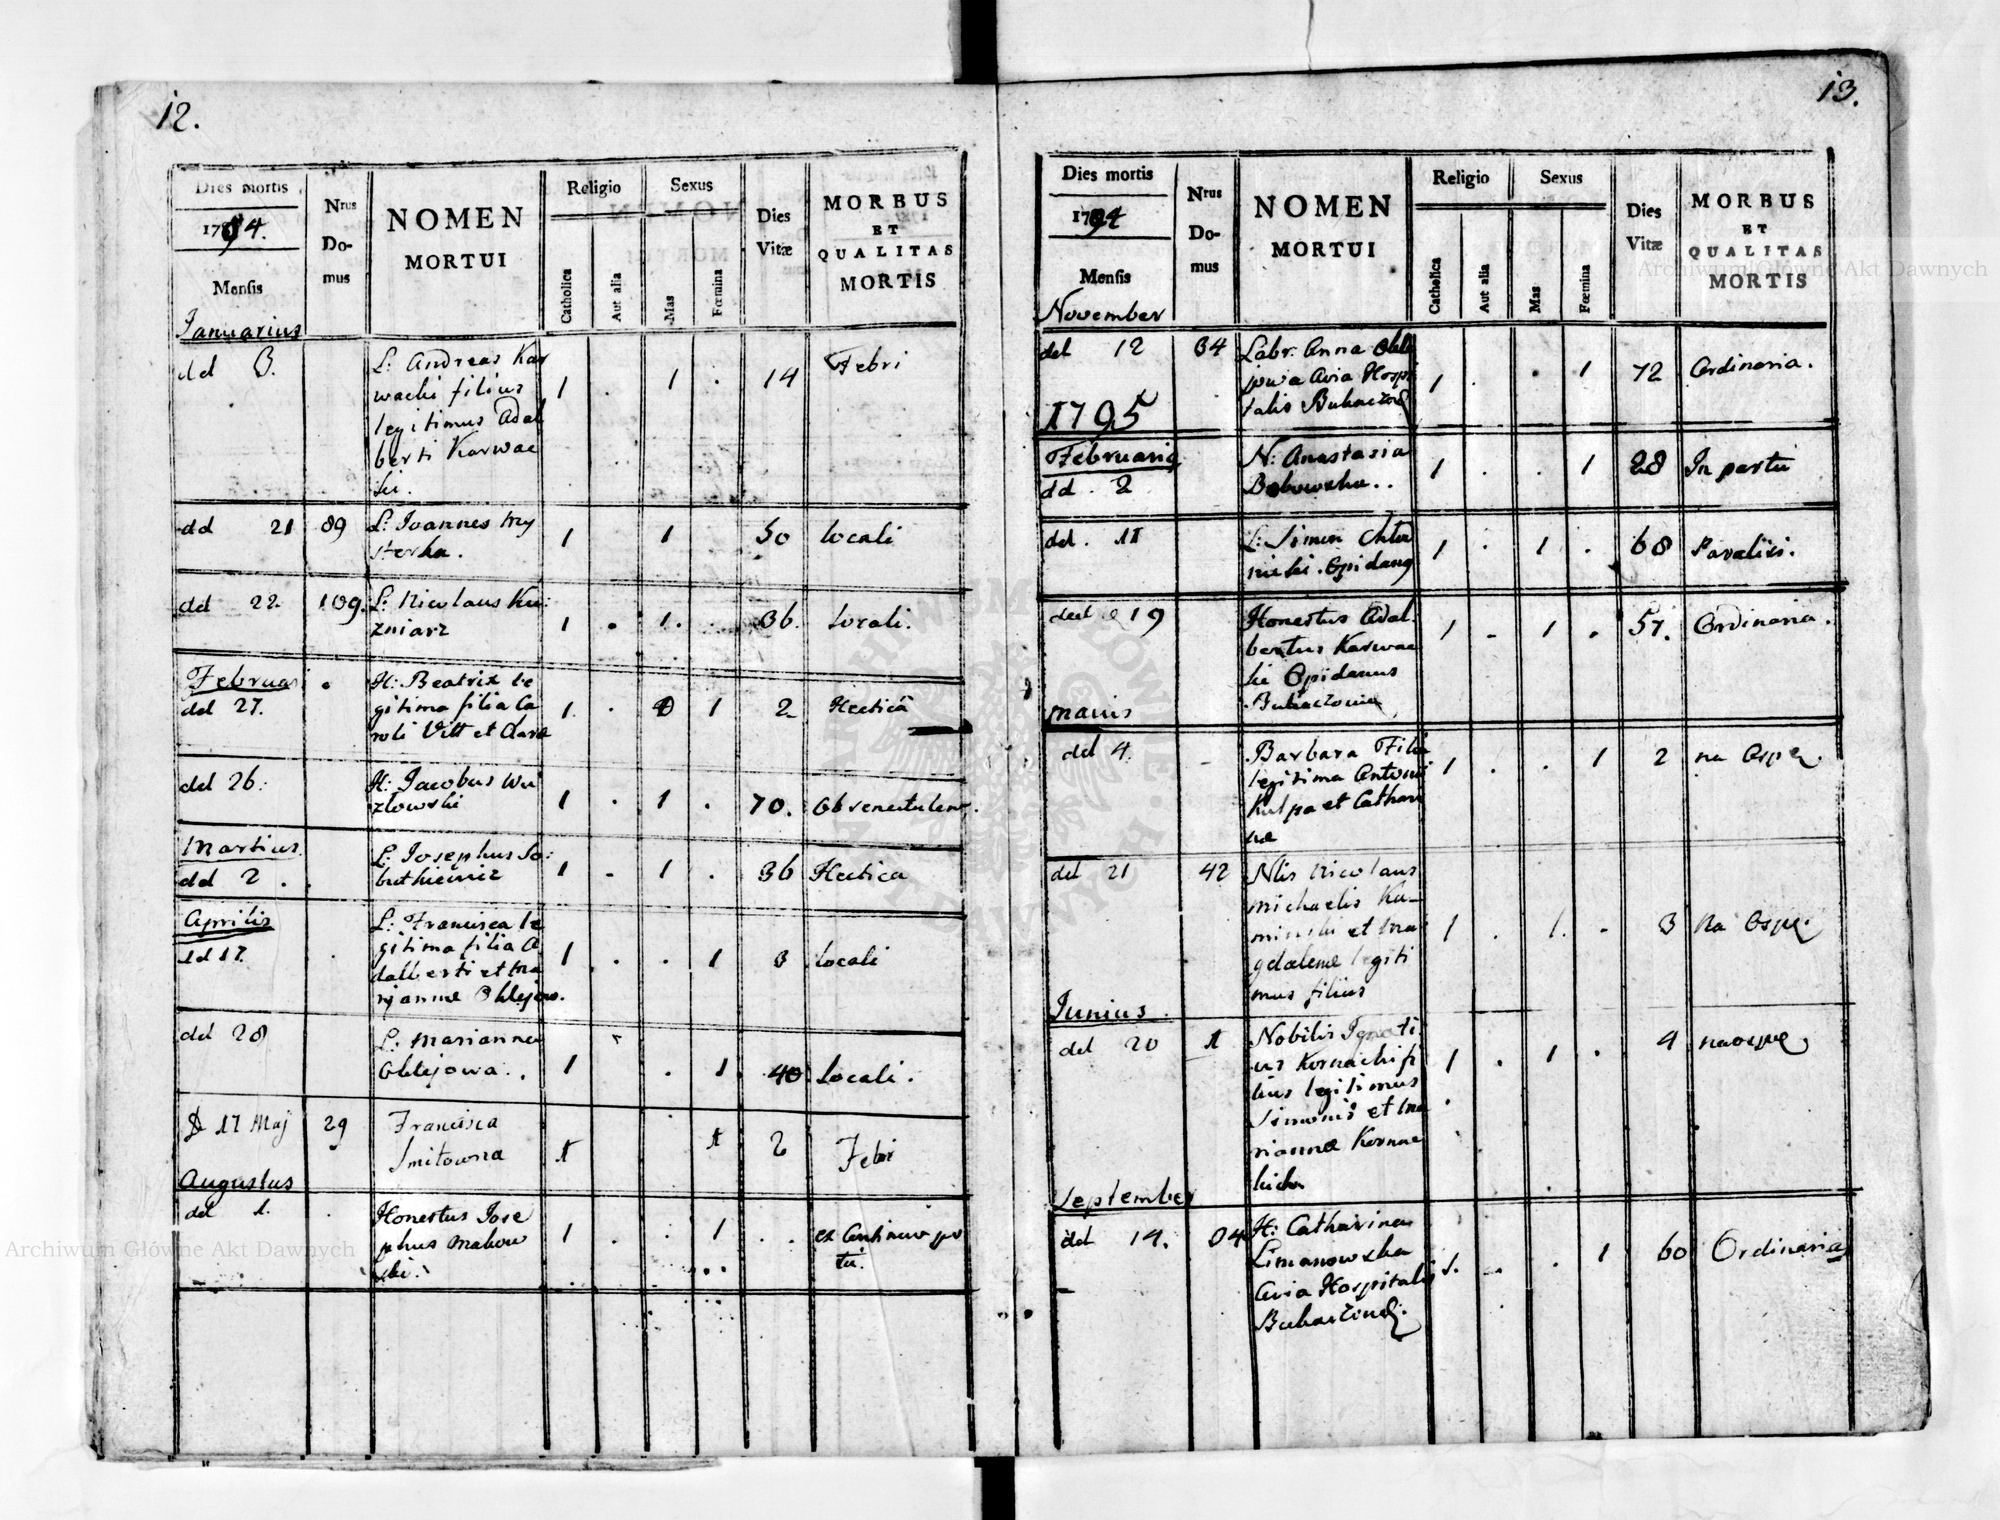 12.
Dies mortis
1794.
Mensis
Nrus
Do-
mus
NOMEN
MORTUI
Religio
Catholica
Aut alia
Sexus
Mas
Fœmina
Dies
Vitæ
MORBUS
ET
QUALITAS
MORTIS
Januarius
dd 3.
L: Andreas Kar
wacki filius
legitimus Adal
berti Karwac
ki.
1 . 1 . 14 Febri
dd 21 89 L: Joannes My
sterka.
1 1 50 locali
dd 22. 109. L: Nicolaus Ku:
zniarz
1 . 1. . 36. Locali.
Februar
dd 27.
H: Beatrix le
gitima filia Ca
roli Vitt et Clara
1. . 1 2 Hectica
dd 26.
H: Jacobus Wu
zlowski
1 . 1 . 70. Ob senectutem.
Martius
dd 2.
L: Josephus So:
butkiewicz
1 - 1 . 36 Hectica
Aprilis
dd 17.
L: Francisca le
gitima filia A
dalberti et Ma
rjannæ Oklejow.
1 . . 1 3 locali
dd 28
L: Marianna
Oklejowa..
1 . 1 40 Locali.
D 17 Maj 29 Francisca
Smitowna
1 1 2 Febri
Augustus
dd 1.
Honestus Jose
phus Makow
ski.
1 . . 1 . . ex Continuo po
tu.
13.
Dies mortis
1794
Mensis
Nrus
Do-
mus
NOMEN
MORTUI
Religio
Catholica
Aut alia
Sexus
Mas
Fœmina
Dies
Vitæ
MORBUS
ET
QUALITAS
MORTIS
November
dd 12 34 Labr. Anna Okle
jowa Avia Hospi
talis
1 . . 1 72 Ordinaria.
1795
Februarius
dd. 2
N: Anastasia
Bobowska..
1 . . 1 28 In partu
dd. 11
L: Simon
1 . 1 . 68 Paralixi.
19
Honestus Adal
bertus Karwac
ki Opidanus
1 - 1 . 57. Ordinaria.
Maius
dd 4.
Barbara Filia
legitima Antonii
Kulpa et Cathari
næ
1 . . 1 2 na Ospę
dd 21 42 Nlis Nicolaus
Michaelis Ka-
minski et Ma
gdalenæ legiti
mus filius
1 . 1. - 3 Na Ospę.
Junius
dd 20 1 Nobilis Ignati
us Kornacki fi
lius legitimus
Simonis et Ma
riannæ Kornac
kich
1 . 1 . 4 na ospę
September
dd 14. 34 H: Catharina
Limanowska
Avia Hospitalis
1. - . 1 60 Ordinaria
Archiwum Główne Akt Dawnych
Archiwum Główne Akt Dawnych
ARCHIWUM GŁÓWNE AKT DAWNYCH